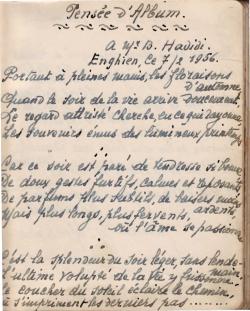 Pensée d'Album.
A Mr B. Hadidi.
Enghien, ce 7/2 1956.
Portant à pleines mains, les floraisons
d'automne
Quand le soir de la vie arrive doucement.
Le regard attristé cherche, en ce qui
Les souvenirs émus des lumineux printemps
Car ce soir est paré de tendresse si
De doux gestes furtifs, calmes et reposants
De parfums plus subtils, de baisers moins
ardents,
Mais plus longs, plus fervents,
où l'âme se passionne
C'est la splendeur du soir léger, sans lende-
main,
L'ultime volupté de la vie y
Le coucher du soleil éclaire le chemin,
où s'impriment les derniers pas ......